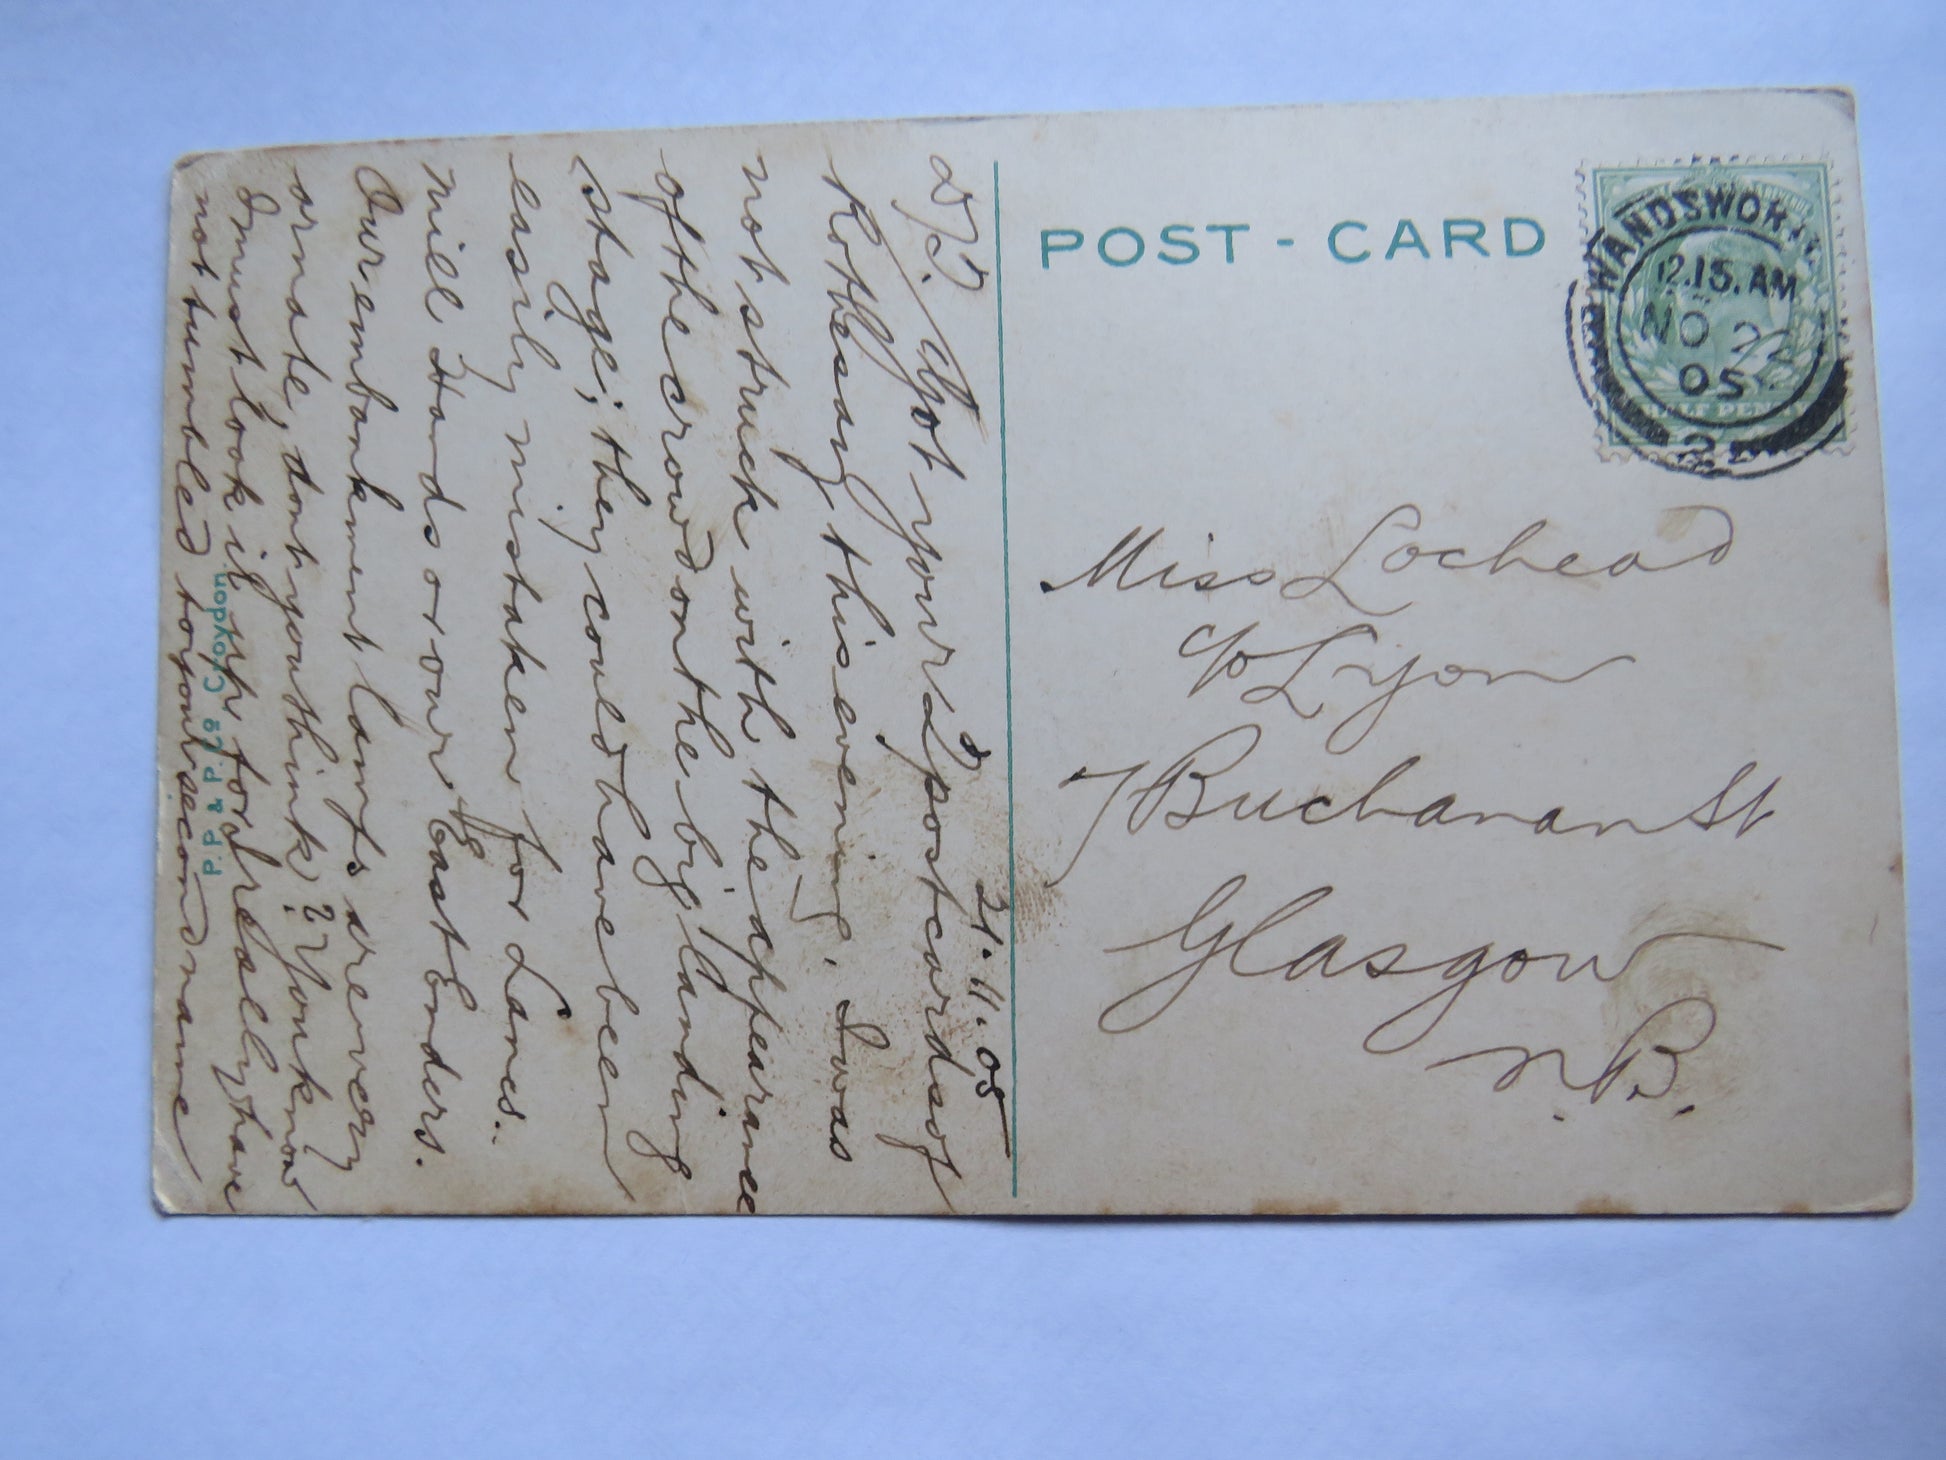 POST - CARD
WANDSWORTH
12.15. AM
NO 22
05
2
HALF PENNY
Miss Lochead
c/o Lyon
7 Buchanan St
Glasgow
N.B.
21.11.05
D. J. Got your 2nd postcard of
Rothesay this evening. I was
not struck with the appearance
of the crowd on the big landing
stage; they could have been
easily mistaken for Lancs.
mill Hands or our "15" East Enders.
Our embankment lamps are very
ornate, dont you think? You know
I must look it up for I really have
not tumbled to your second name
P. P. & P. Co Croydon.